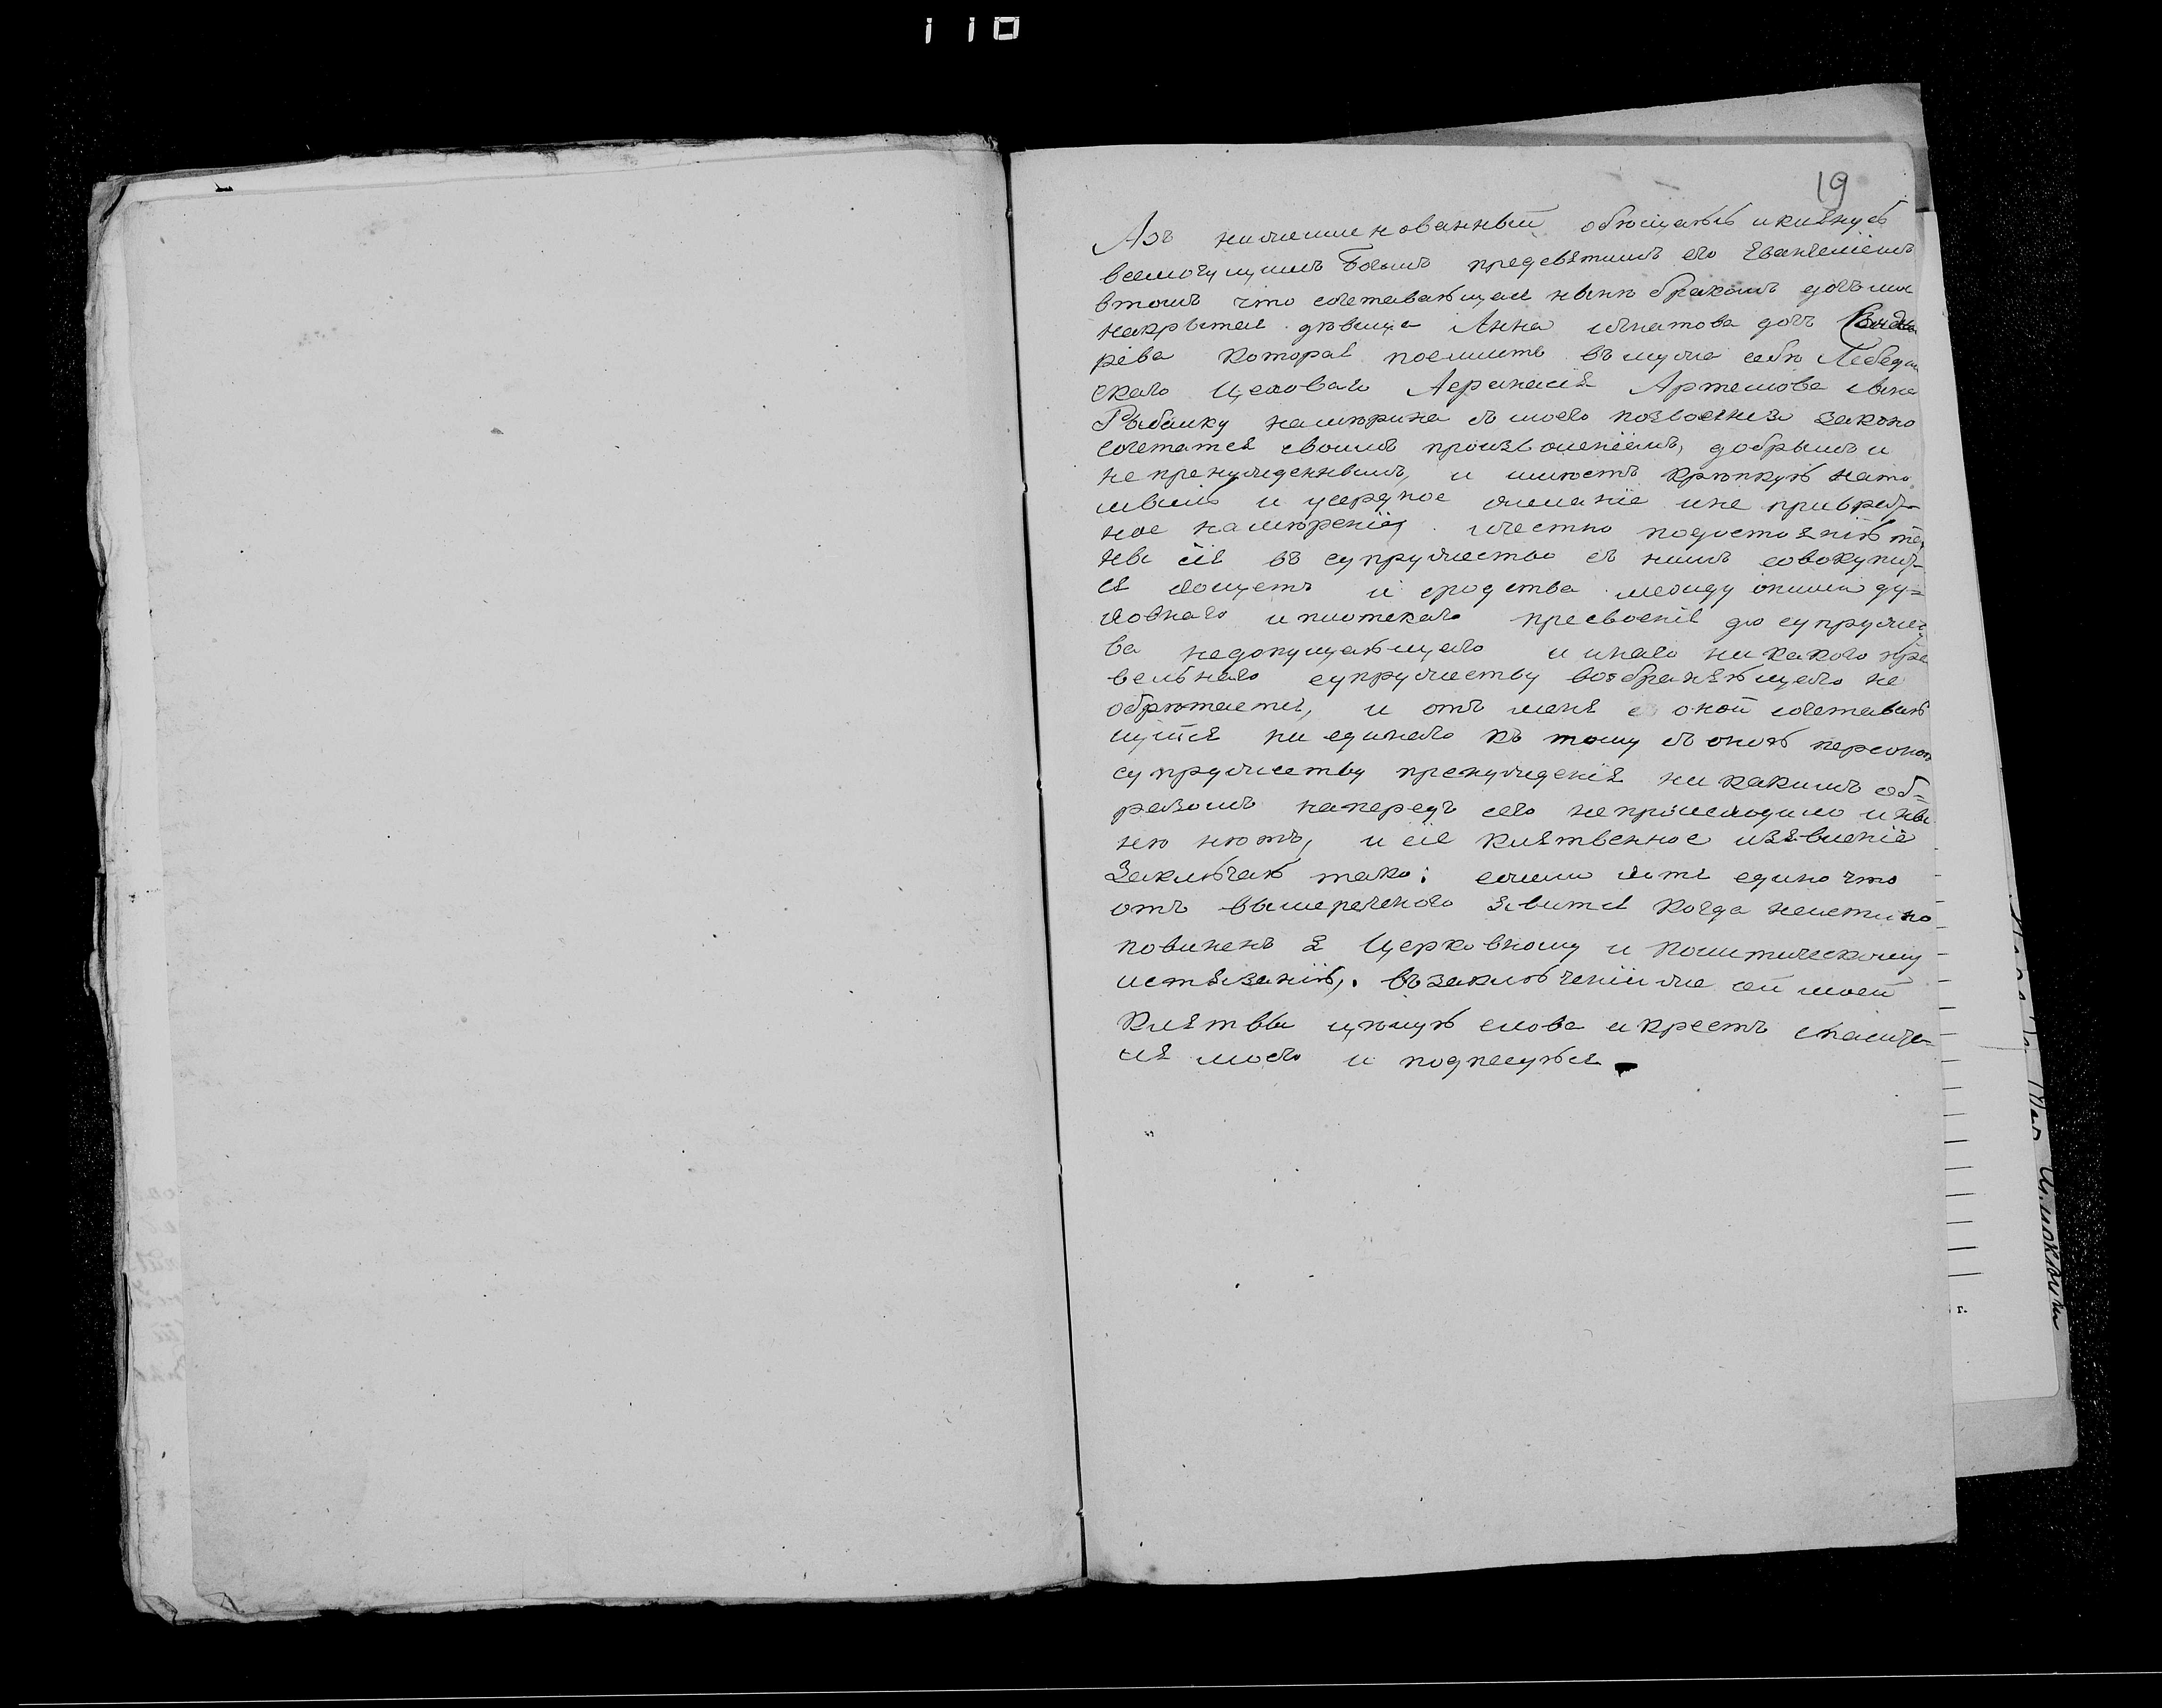 110
19
Азъ нижеименованный обѣщаюсь и кленусь
всемогущимъ Богомъ предсвятимъ его Евангелiемъ
втомъ что сочетавающая нынѣ бракомъ дочь моя
накрытая дѣвица Анна Игнатова дочь
рева которая поемлетъ въ мужа себѣ Лебедин
скаго Цеховаго Афанасія Артемова сына
Рыбалку намѣрена съ моего позволенія законо
сочетатся своимъ произволенiемъ, добрымъ и
непренужденнымъ, и имѣетъ крѣпкую на то
мысль и усердное желанiе и не приврат-
ное намѣренiе, и честно подостоянiю
ны сiя въ супружество съ нимъ совокупит-
ся хощетъ и сродства между оними ду-
ховнаго и плотскаго пресвоенiя до супружест
ва недопущающаго и инаго никакого пра
вельнаго супружеству возбраняющаго не
обрѣтается, и отъ меня с оной сочетаваю
щуйся ни единаго къ тому съ оною персоною
супружеству пренужденiя ни какимъ об=
разомъ напередъ сего непроисходило и ны
нѣ нѣтъ, и сiе клятвенное изявленiе
Заключаю тако: ежели хотя едино что
отъ вышереченого явится когда неистинно
повиненъ я Церковному и политическому
истязанiю,. въ заключенiи же сей моей
клятвы цѣлую слова и крестъ спасите-
ля моего и подпесуюся
г.